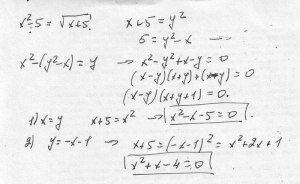 x²-5 = √x+5.
x+5 = y²
5 = y²-x
x²-(y²-x) = y → x²-y²+x-y = 0
(x-y)(x+y)+(x-y) = 0
(x-y)(x+y+1) = 0.
1) x=y x+5 = x² → x²-x-5 = 0.
2) y = -x-1 → x+5 = (-x-1)² = x²+2x+1
x²+x-4 = 0